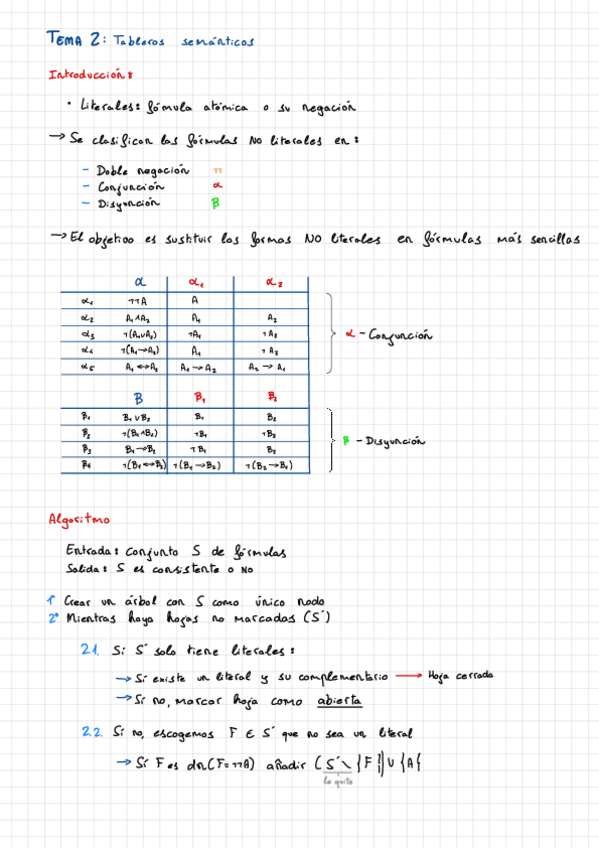 TEMA 2: Tableros semánticos
Introducción:
• Literales: fórmula atómica o su negación
→ Se clasifican las fórmulas NO literales en:
- Doble negación ¬¬
- Conjunción α
- Disyunción β
→ El objetivo es sustituir las formas NO literales en fórmulas más sencillas
α α₁ α₂
α₁ ¬¬A A
α₂ A₁∧A₂ A₁ A₂
α₃ ¬(A₁∨A₂) ¬A₁ ¬A₂
α₄ ¬(A₁→A₂) A₁ ¬A₂
α₅ A₁↔A₂ A₁→A₂ A₂→A₁
α - Conjunción
β β₁ β₂
β₁ B₁∨B₂ B₁ B₂
β₂ ¬(B₁∧B₂) ¬B₁ ¬B₂
β₃ B₁→B₂ ¬B₁ B₂
β₄ ¬(B₁↔B₂) ¬(B₁→B₂) ¬(B₂→B₁)
β - Disyunción
Algoritmo
Entrada: conjunto S de fórmulas
Salida: S es consistente o NO
1º Crear un árbol con S como único nodo
2º Mientras haya hojas no marcadas (S')
2.1. Si S' solo tiene literales:
→ Si existe un literal y su complementario → Hoja cerrada
→ Si no, marcar hoja como abierta
2.2. Si no, escogemos F ∈ S' que no sea un literal
→ Si F es dn(F=¬¬A) añadir (S'∖{F})∪{A}
lo quito